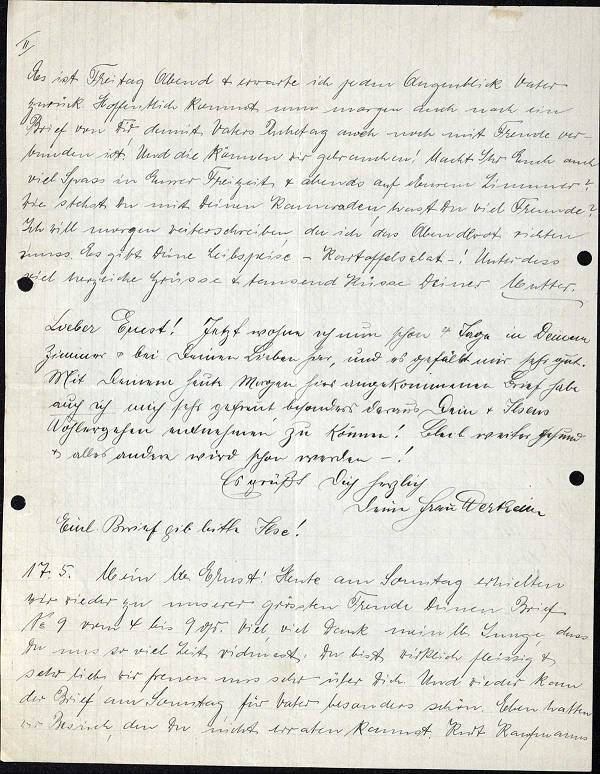 II
Es ist Freitag Abend & erwarte ich jeden Augenblick Vater
zurück. Hoffentlich kommt nun morgen auch noch ein
Brief von Dir damit Vaters Ruhetag auch noch mit Freude ver-
bunden ist! Und die können wir gebrauchen! Macht Ihr Euch auch
viel Spass in Eurer Freizeit & abends auf Eurem Zimmer?
Wie stehst Du mit Deinen Kameraden hast Du viel Freunde?
Ich will morgen weiterschreiben da ich das Abendbrot richten
muss. Es gibt Deine Leibspeise - Kartoffelsalat -! Unterdess
viel herzliche Grüsse & tausend Küsse Deiner Mutter.
Lieber Ernst! Jetzt wohne ich nun schon 4 Tage in Deinem
Zimmer & bei Deinen Lieben hier, und es gefällt mir sehr gut.
Mit Deinem heute Morgen hier angekommenen Brief habe
auch ich mich sehr gefreut besonders daraus Dein & Ilsens
Wohlergehen entnehmen zu können! Bleib weiter gesund
& alles andere wird schon werden -!
Es grüßt Dich herzlich
Deine Frau Wertheim
Brief gib bitte Ilse!
17.5. Mein lb. Ernst! Heute am Sonntag erhielten
wir wieder zu unserer grössten Freude Deinen Brief
No 9 vom 4 bis 9 ds. Viel viel Dank mein lb. Junge, dass
Du uns so viel Zeit widmest. Du bist wirklich fleissig &
sehr lieb wir freuen uns sehr über Dich. Und wieder kam
der Brief am Sonntag für Vater besonders schön. Eben hatten
wir Besuch, den Du nicht erraten kannst. Kurt Kaufmanns